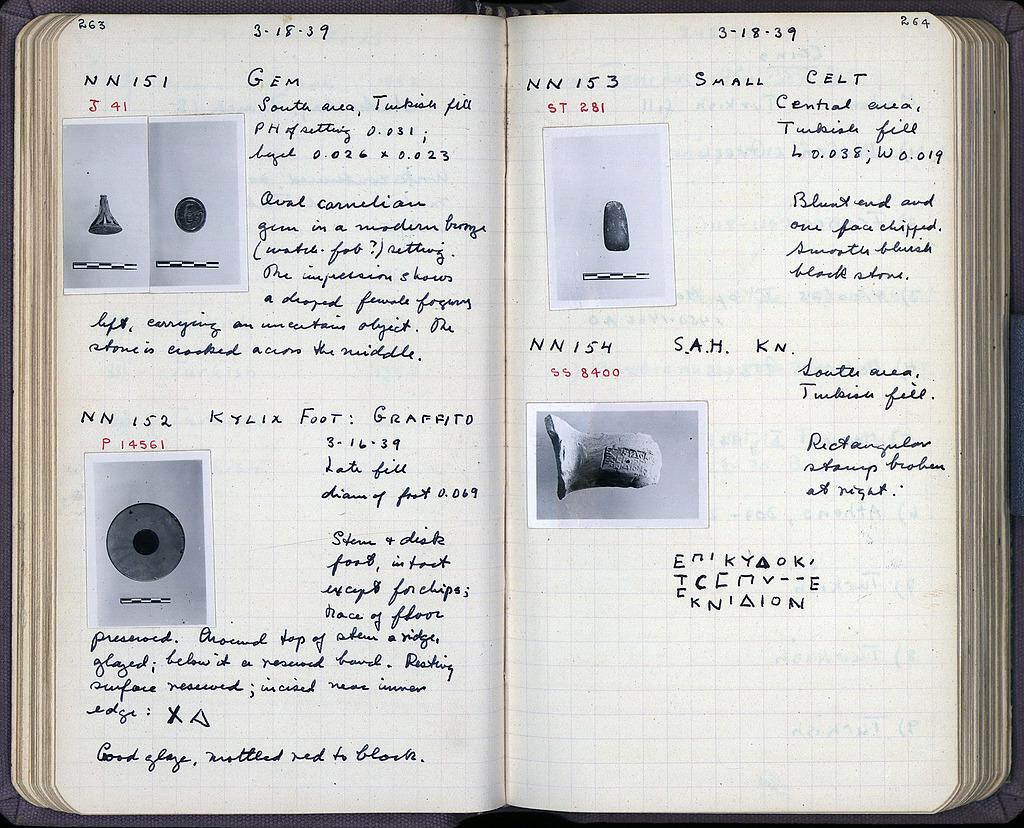 263
3-18-39
NN 151 GEM
J 41
South area, Turkish fill
PH of setting 0.031;
bezel 0.026 x 0.023
Oval carnelian
gem in a modern bronze
(watch-fob?) setting.
The impression shows
a draped female figure
left, carrying an uncertain object. The
stone is cracked across the middle.
NN 152 KYLIX FOOT: GRAFFITO
P 14561
3-16-39
Late fill
diam of foot 0.069
Stem & disk
foot, intact
except for chips;
trace of floor
preserved. Around top of stem a ridge,
glazed; below it a reserved band. Resting
surface reserved; incised near inner
edge: X Δ
Good glaze, mottled red to black.
264
3-18-39
NN 153 SMALL CELT
ST 281
Central area,
Turkish fill
L 0.038; W 0.019
Blunt end and
one face chipped.
Smooth bluish
black stone.
NN 154 S.A.H. KN.
SS 8400
South area,
Turkish fill.
Rectangular
stamp broken
at right.
ΕΠΙΚΥΔΟΚΙ
ΚΝΙΔΙΟΝ